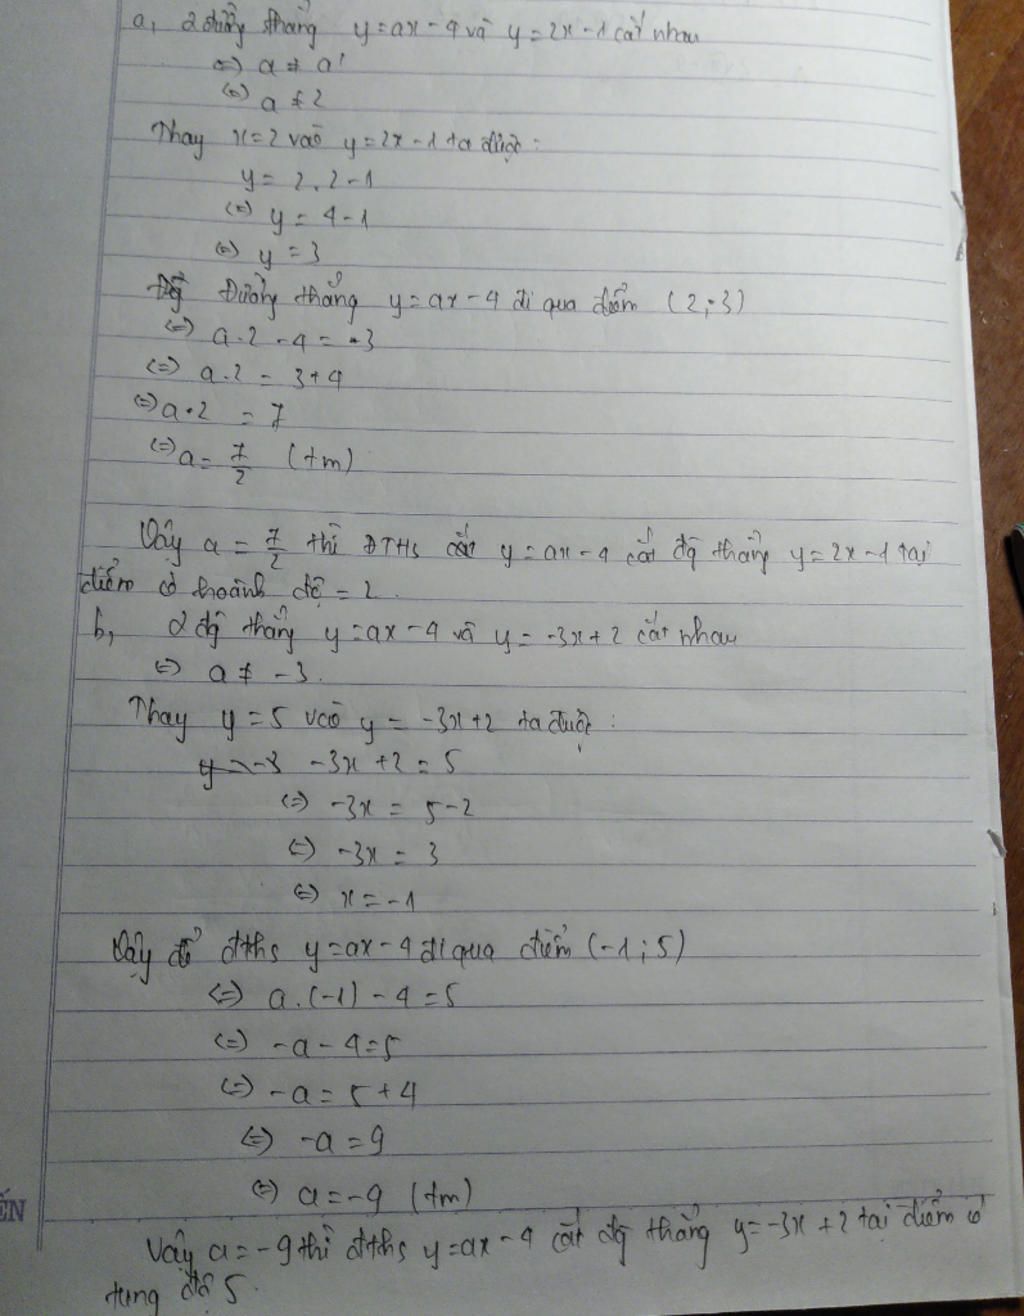 a, 2 đường thẳng y = ax - 4 và y = 2x - 1 cắt nhau
<=> a ≠ a'
<=> a ≠ 2
Thay x = 2 vào y = 2x - 1 ta được :
y = 2.2 - 1
<=> y = 4 - 1
<=> y = 3
Đường thẳng y = ax - 4 đi qua điểm (2;3)
<=> a.2 - 4 = 3
<=> a.2 = 3 + 4
<=> a.2 = 7
<=> a = 7/2 (tm)
Vậy a = 7/2 thì ĐTHS y = ax - 4 cắt đg thẳng y = 2x - 1 tại
điểm có hoành độ = 2.
b, 2 đg thẳng y = ax - 4 và y = -3x + 2 cắt nhau
<=> a ≠ -3.
Thay y = 5 vào y = -3x + 2 ta được :
-3x + 2 = 5
<=> -3x = 5 - 2
<=> -3x = 3
<=> x = -1
Vậy để đths y = ax - 4 đi qua điểm (-1;5)
<=> a.(-1) - 4 = 5
<=> -a - 4 = 5
<=> -a = 5 + 4
<=> -a = 9
<=> a = -9 (tm)
ẾN
Vậy a = -9 thì đths y = ax - 4 cắt đg thẳng y = -3x + 2 tại điểm có
tung độ 5.